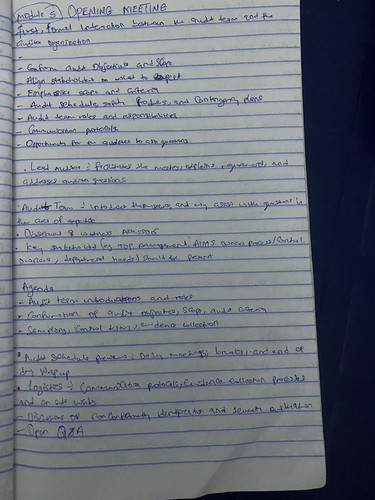 Module 5 OPENING MEETING
First, formal Interaction between the audit team and the
auditee organisation
-
- Confirm audit Objectives and Scope
- Align stakeholders on what to expect
- Emphasise scope and criteria
- Audit schedule, safety and Contingency plans
- Audit team roles and responsibilities
- Communication protocols
- Opportunity for auditees to ask questions
• Lead Auditor : facilitates the meeting, explains and
addresses auditee questions
Audit Team : introduce themselves and may assist with questions in
the area of expertise
• Observers & witness
• Key stakeholders (eg top management, AIMS owners Process/Control
, departmental heads) should be present
Agenda
- Audit team introductions and roles
- Confirmation of audit objectives, scope, audit criteria
- Sampling, Control tests, evidence collection
• Audit schedule : Daily meetings breaks, and end of
day wrap up
• Logistics : Communication protocols, Evidence collection processes
and on site
- Discussion of non conformity identification and evaluation
- Open Q&A